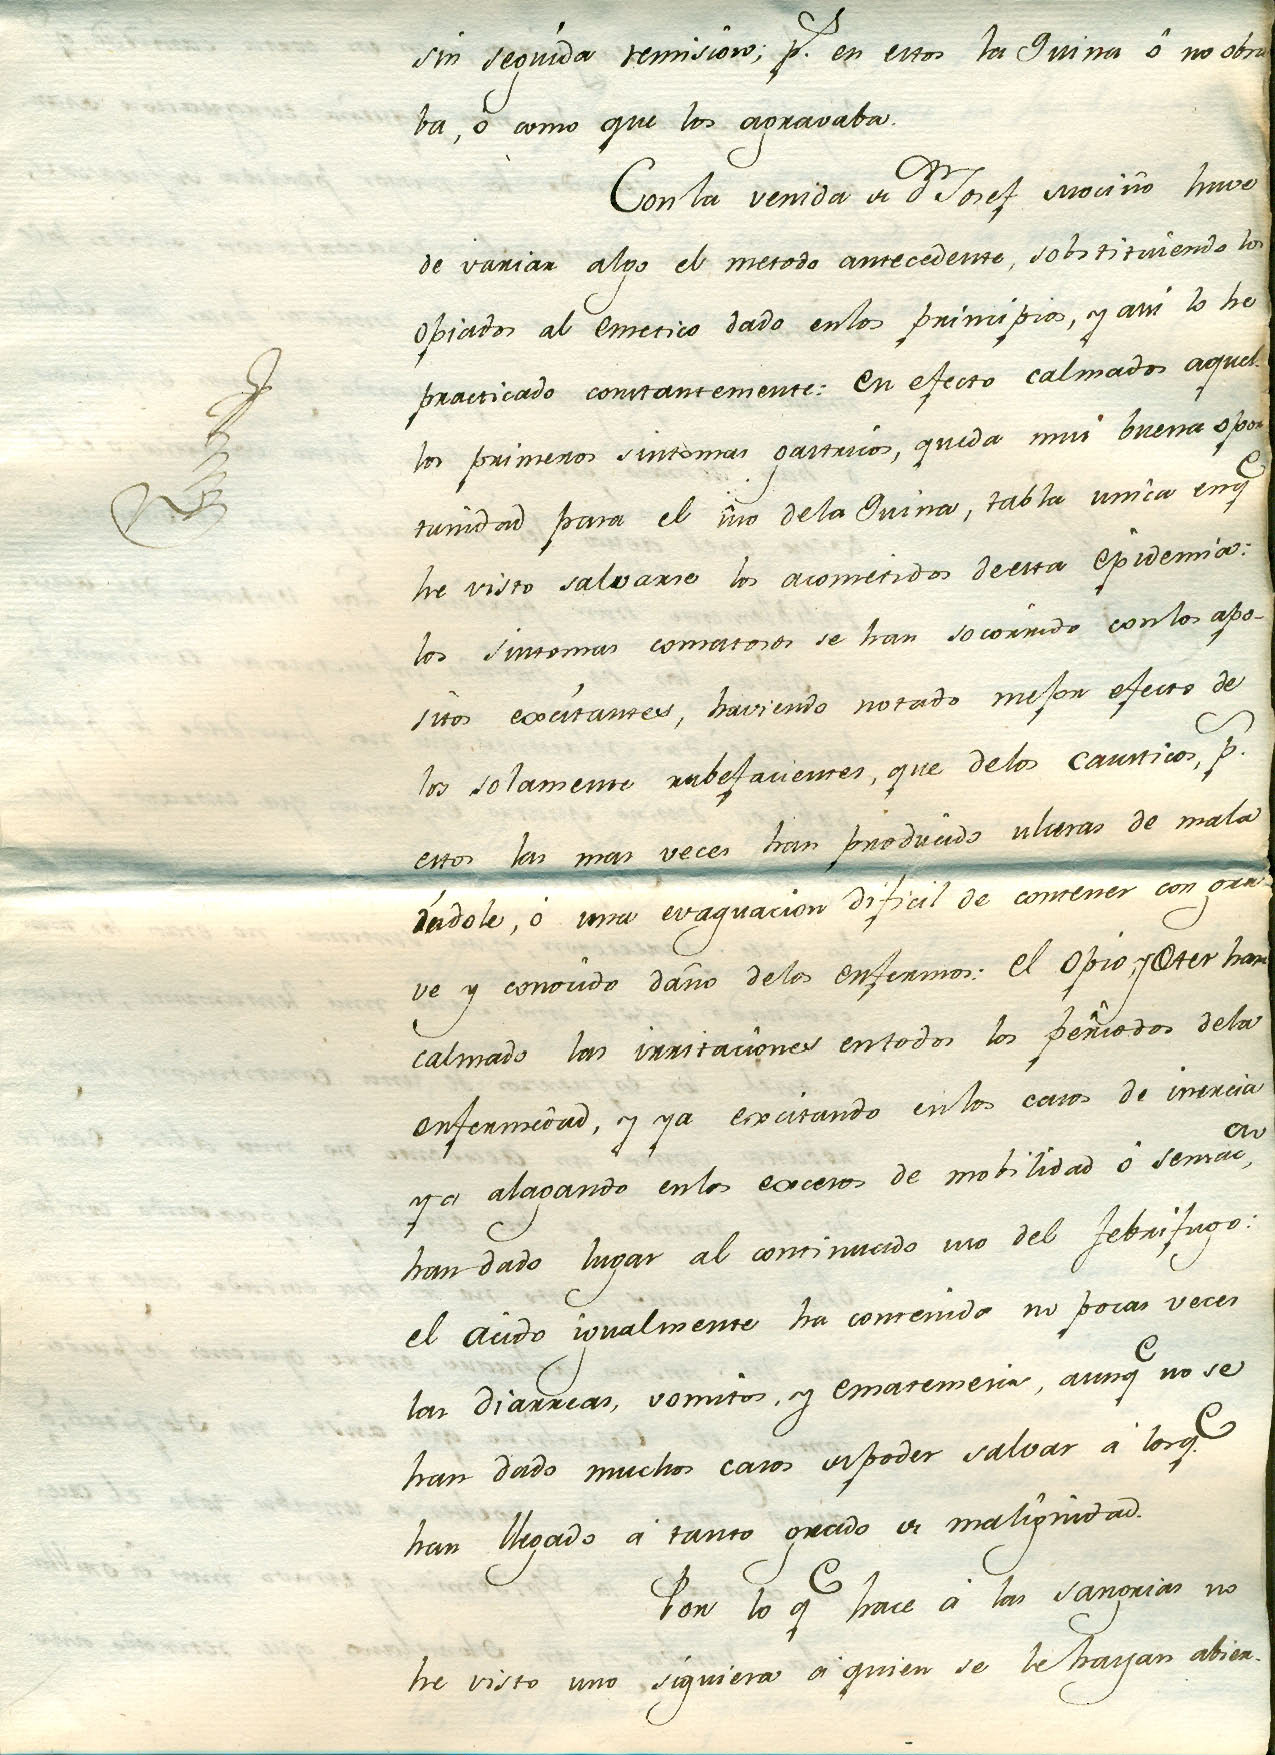 sin seguida remision; p.s en estos la Quina ó no obra
ba, ó como que los agravaba.
Con la venida de Dn Josef Mociño huve
de variar algo el metodo antecedente, sobstituiendo los
opiados al Emetico dado enlos principios, y asi lo he
practicado constantemente: en efecto calmados aquel-
los primeros sintomas gastricos, queda mui buena opor
tunidad para el uso dela Quina, tabla unica enqe
he visto salvarse los acometidos deesta Epidemia:
los sintomas comatosos se han socorrido conlos apo-
sitos excitantes, haviendo notado mejor efecto de
los solamente rubefacientes, que delos Causticos, p.s
estos las mas veces han producido ulceras de mala
indole, ó una evaquacion dificil de contener con gra
ve y conocido daño delos enfermos: el Opio, y Eter han
calmado las irritaciones entodos los periodos dela
enfermedad, y ya excitando enlos casos de inercia
ya alagando enlos excesos de mobilidad ó sensacon,
han dado lugar al continuado uso del febrifugo:
el acido igualmente ha contenido no pocas veces
las diarreas, vomitos, y ematemesia, aunqe no se
han dado muchos casos de poder salvar á losqe
han llegado á tanto grado de malignidad.
Por lo qe hace á las sangrias no
he visto uno siquiera á quien se le hayan abier-